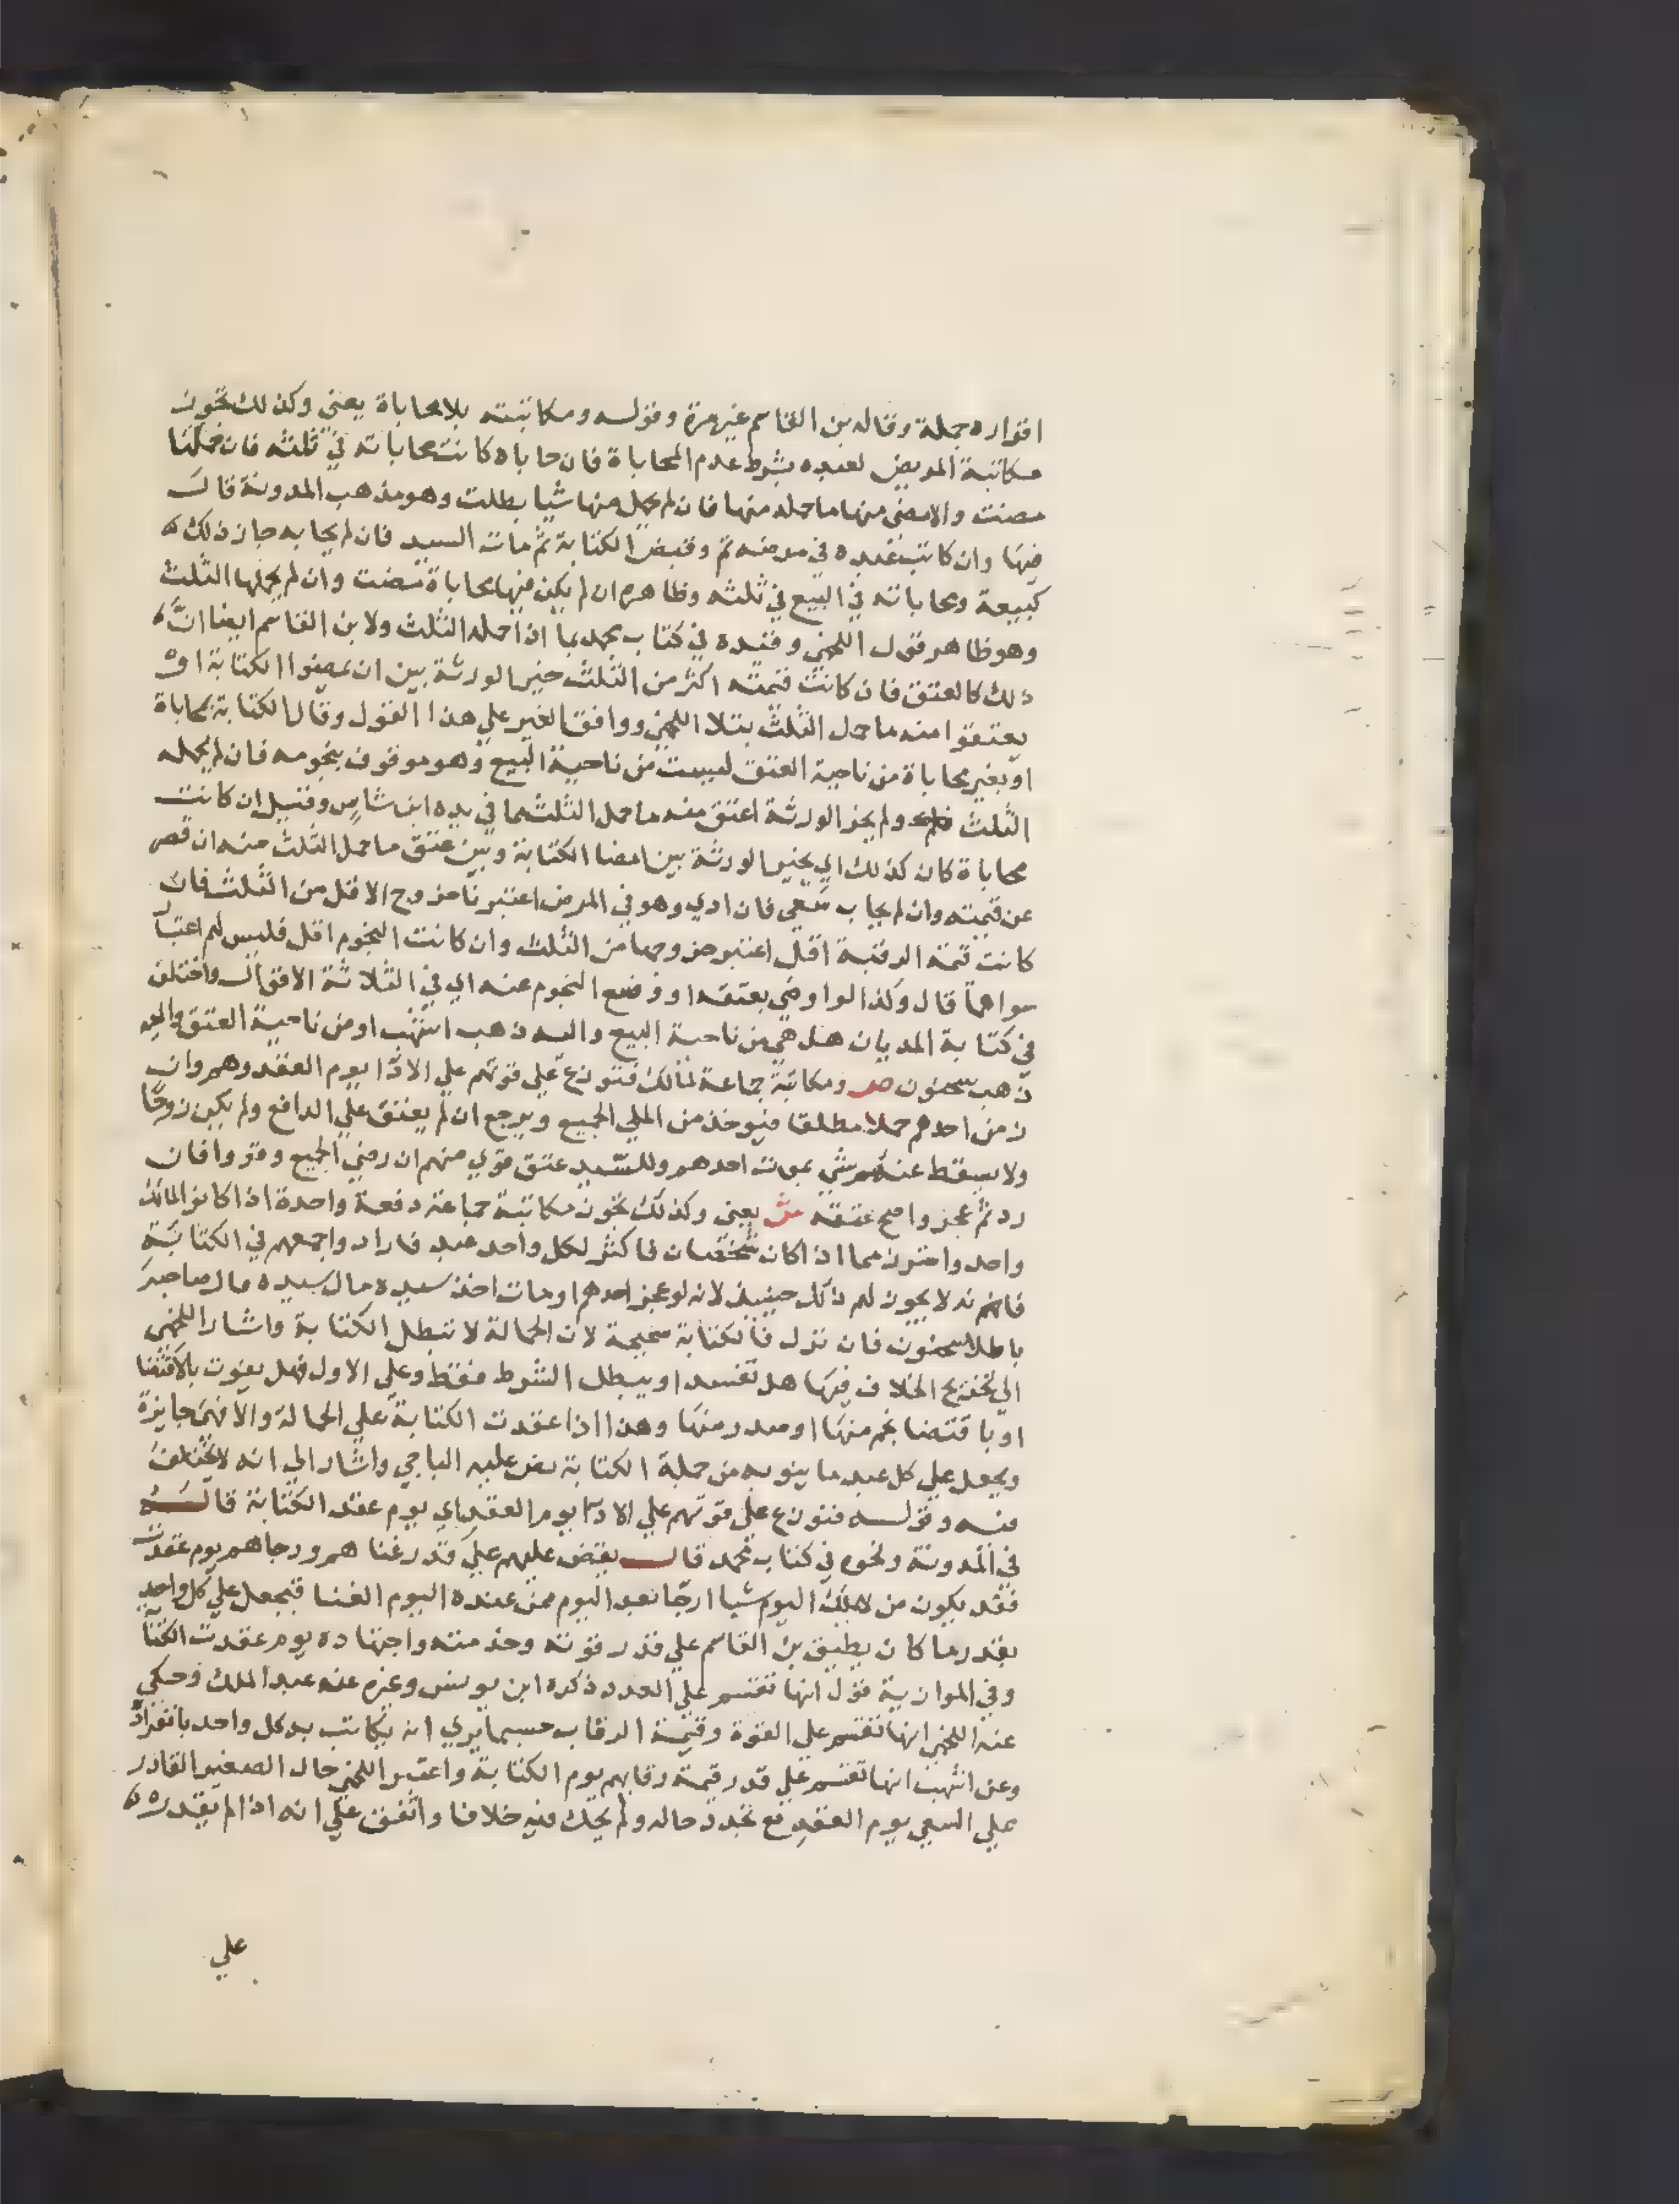 اقراره جملة وقاله بن القاسم غير مرة وقوله ومكاتبته بلا محاباة يعني وكذلك تجوز
مكاتبة المريض لعبده بشرط عدم المحاباة فان حاباه كانت محاباته في ثلثه فان حملها
مضت والا مضى منها ما حمله منها فان لم يحمل منها شيا بطلت وهو مذهب المدونة قال
فيها وان كاتب عبده في مرضه تم وقبض الكتابة ثم مات السيد فان لم يحابه جاز ذلك
كبيعة ومحاباته في البيع في ثلثه وظاهره ان لم يكن فيها محاباة مضت وان لم يحملها الثلث
وهو ظاهر قول اللخمي وقيده في كتاب محمد بما اذا حمله الثلث ولابن القاسم ايضا ان
ذلك كالعتق فان كانت قيمته اكثر من الثلث خير الورثة بين ان يمضوا الكتابة او
يعتقوا منه ما حمل الثلث بتلا اللخمي ووافق الغير علي هذا القول وقال الكتابة بمحاباة
او بغير محاباة من ناحية العتق ليست من ناحية البيع وهو موقوف بنجومه فان لم يحمله
الثلث ولم يجز الورثة اعتق منه ما حمل الثلث بما في يده ابن شاس وقيل ان كانت
محاباة كان كذلك اي يخير الورثة بين امضا الكتابة وبين عتق ما حمل الثلث منه ان قصر
عن قيمته وان لم يحاب سعى فان ادي وهو في المرض اعتبرنا خروج الاقل من الثلث فان
كانت قيمة الرقبة اقل اعتبر خروجها من الثلث وان كانت النجوم اقل فليس لهم اعتبار
سواها قال وكذا لو اوصي بعتقه او وضع النجوم عنه اي في الثلاثة الاقوال واختلف
في كتابة المديان هل هي من ناحية البيع واليه ذهب اشهب او من ناحية العتق واليه
ذهب سحنون ص ومكاتبة جماعة لمالك فتوزع علي قوتهم علي الادا يوم العقد وهم وان
زمن احدهم حملا مطلقا فيوخذ من الملي الجميع ويرجع ان لم يعتق علي الدافع ولم يكن زوجا
ولا يسقط عنهم شي بموت احدهم وللسيد عتق قوي منهم ان رضي الجميع وقووا فان
رد ثم عجز واصح عتقه ش يعني وكذلك تجوز مكاتبة جماعة دفعة واحدة اذا كانوا لمالك
واحد واحترز مما اذا كان شخصان فاكثر لكل واحد عبد فارادوا جمعهم في الكتابة
فانه لا يجوز لهم ذلك حينيذ لانه لو عجز احدهم او مات اخذ سيده مال سيده مال صاحبه
باطلا سحنون فان نزل فالكتابة صحيحة لان الحمالة لا تبطل الكتابة واشار اللخمي
الي تخريج الخلاف فيها هل تفسد او يبطل الشرط فقط وعلي الاول فهل يفوت بالاقتضا
او باقتضا نجم منها او صدر منها وهذا اذا عقدت الكتابة علي الحمالة والا فهي جايزة
ويجعل علي كل عبد ما ينوبه من جملة الكتابة نص عليه الباجي واشار الي انه لا يختلف
فيه وقوله فتوزع علي قوتهم علي الادا يوم العقد اي يوم عقد الكتابة قاله
في المدونة ونحوه في كتاب محمد قال يقتض عليهم علي قدر غناهم ورجاهم يوم عقدت
فقد يكون من لا يملك اليوم شيا ارجا بعد اليوم ممن عنده اليوم الغنا فيجعل علي كل واحد
بقدر ما كان يطيق بن القاسم علي قدر قوته وخدمته واجتهاده يوم عقدت الكتابة
وفي الموازية قول انها تقتسم علي العدد ذكره ابن يونس وغيره عنه عبد الملك وحكى
عنه اللخمي انها تقتسم علي القوة وقيمة الرقاب حسبما يري انه يكاتب به كل واحد بانفراده
وعن اشهب انها تقتسم علي قدر قيمة رقابهم يوم الكتابة واعتبر اللخمي حال الصغير القادر
علي السعي يوم العقد مع تجدد حاله ولم يحك فيه خلافا واتفق علي انه اذا لم يقدر
علي